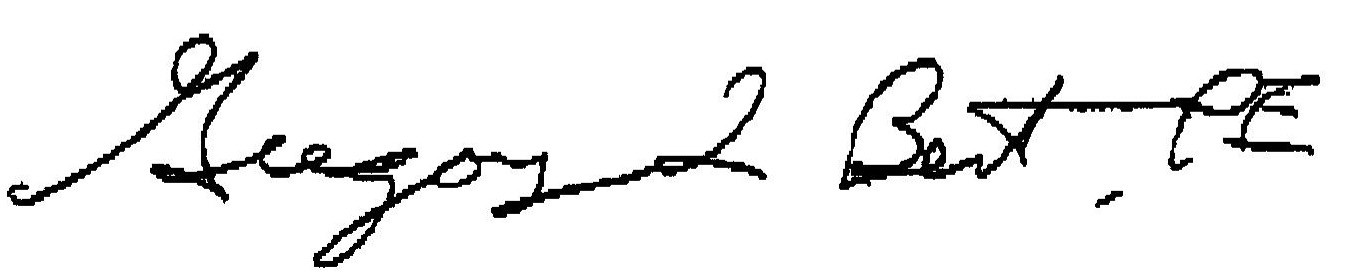 Gregory L Bent, PE